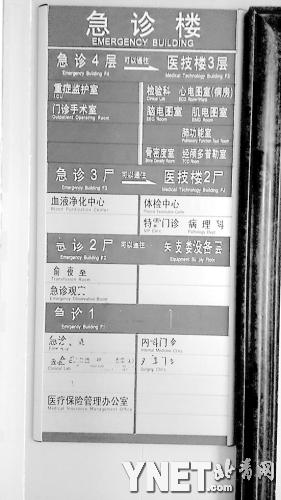 急诊楼
EMERGENCY BUILDING
急诊4层 可以通往 医技楼3层
Emergency Building F4 Medical Technology Building F3
重症监护室
ICU
门诊手术室
Outpatient Operating Room
检验科 心电图室(病房)
Clinical Lab ECG Room
脑电图室 肌电图室
EEG Room EMG Room
肺功能室
Pulmonary Function Test Room
骨密度室 经颅多普勒室
Bone Density Room TCD Room
急诊3 可以通往 医技楼2
Emergency Building F3 Medical Technology Building
血液净化中心
Blood Purification Center
体检中心
特需门诊 病理科
VIP Clinic
急诊2 可以通往
Emergency Building F2 Equipment Supply Floor
Transfusion Room
急诊观
Emergency Observation Room
急诊1
Emergency Building F1
急诊
Clinical Lab
内科门
Internal Medicine Clinic
Surgery Clinic
医疗保险管理办公室
Medical Insurance Management Office
YNET.com
北青网